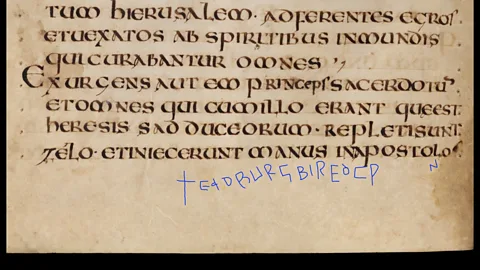 TUM hIERUSALEM· ADFERENTES EGROS
ETUEXATOS AB SPIRITIBUS INMUNDIS
QUI CURABANTUR OMNES
EXURGENS AUTEM PRINCEPS SACERDOTU
ETOMNES QUI CUMILLO ERANT QUEEST
hERESIS SADDUCEORUM· REPLETISUNT
ZELO· ETINIECERUNT MANUS INAPOSTOLOS
+ EADBURG BIREÐ CP N